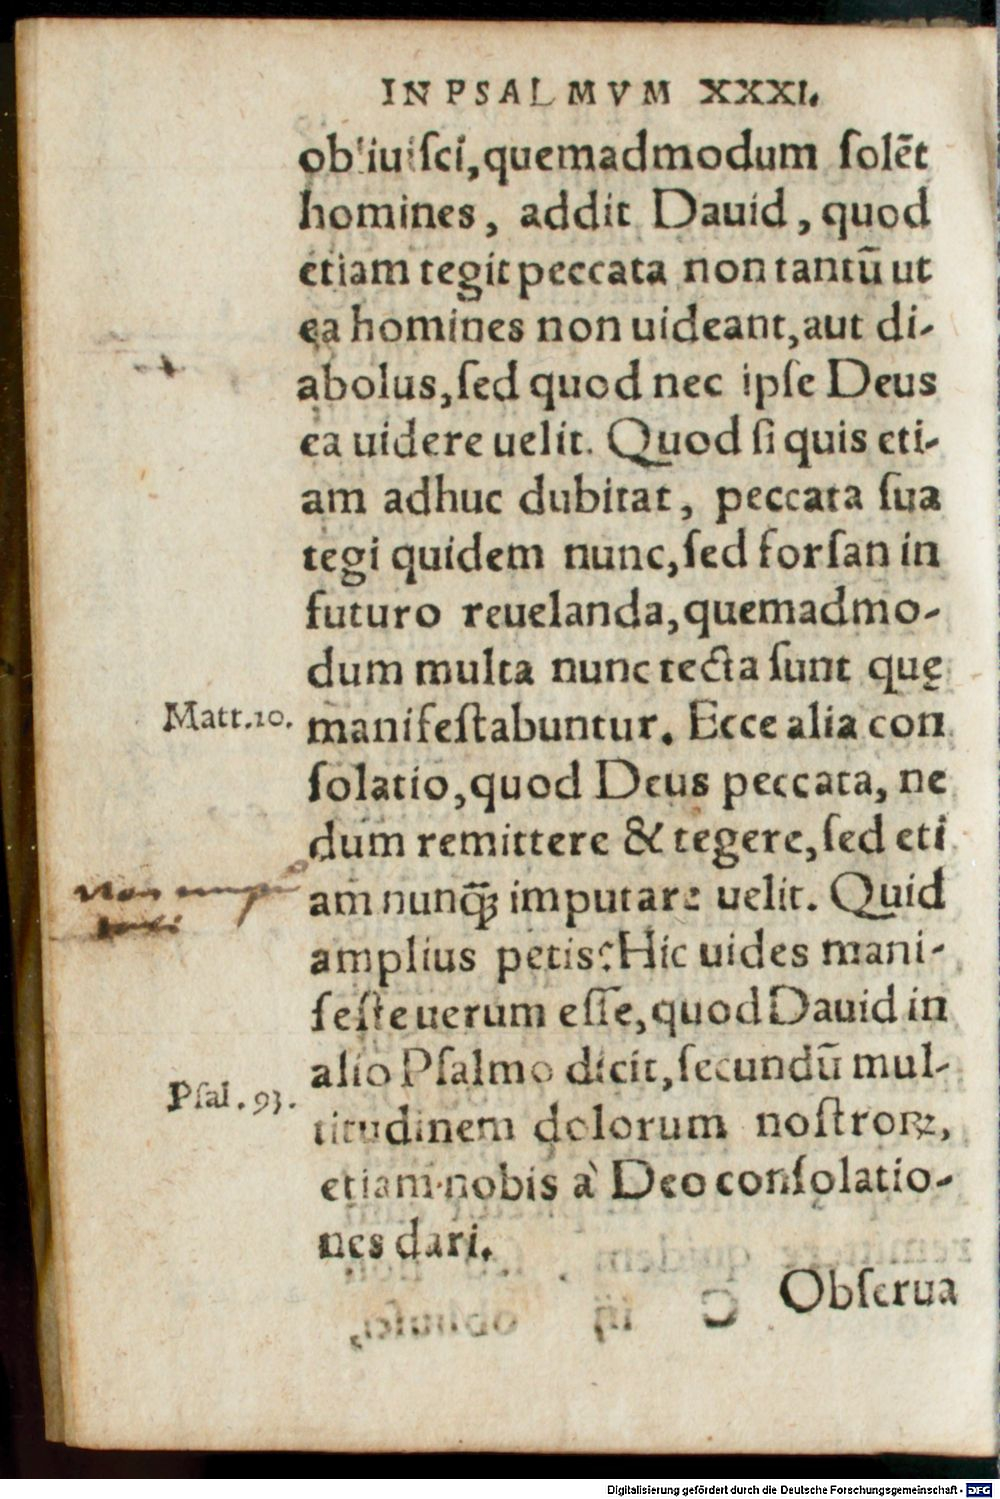 IN PSALMVM XXXI.
obliuisci, quemadmodum ſolēt
homines, addit Dauid, quod
etiam tegit peccata non tantū ut
ea homines non uideant, aut di-
abolus, ſed quod nec ipſe Deus
ea uidere uelit. Quod ſi quis eti-
am adhuc dubitat, peccata ſua
tegi quidem nunc, ſed forſan in
futuro reuelanda, quemadmo-
dum multa nunc tecta ſunt quę
Matt. 10.
manifeſtabuntur. Ecce alia con
ſolatio, quod Deus peccata, ne
dum remittere & tegere, ſed eti
am nunq̄ꝫ imputare uelit. Quid
amplius petis? Hic uides mani-
feſte uerum eſſe, quod Dauid in
alio Pſalmo dicit, ſecundū mul-
Pſal. 93.
titudinem dolorum noſtroꝝ,
etiam nobis à Deo conſolatio-
nes dari.
Obſerua
Digitalisierung gefördert durch die Deutsche Forschungsgemeinschaft - DFG